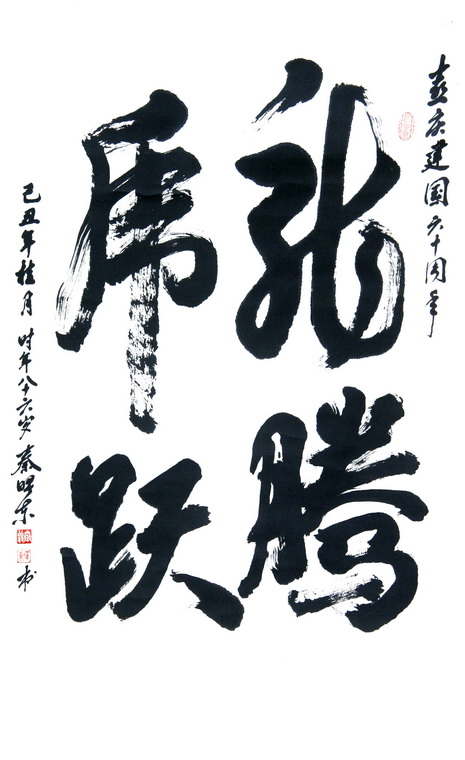 喜庆建国六十周年
龙腾
虎跃
己丑年桂月 时年八十六岁 秦曙东 书